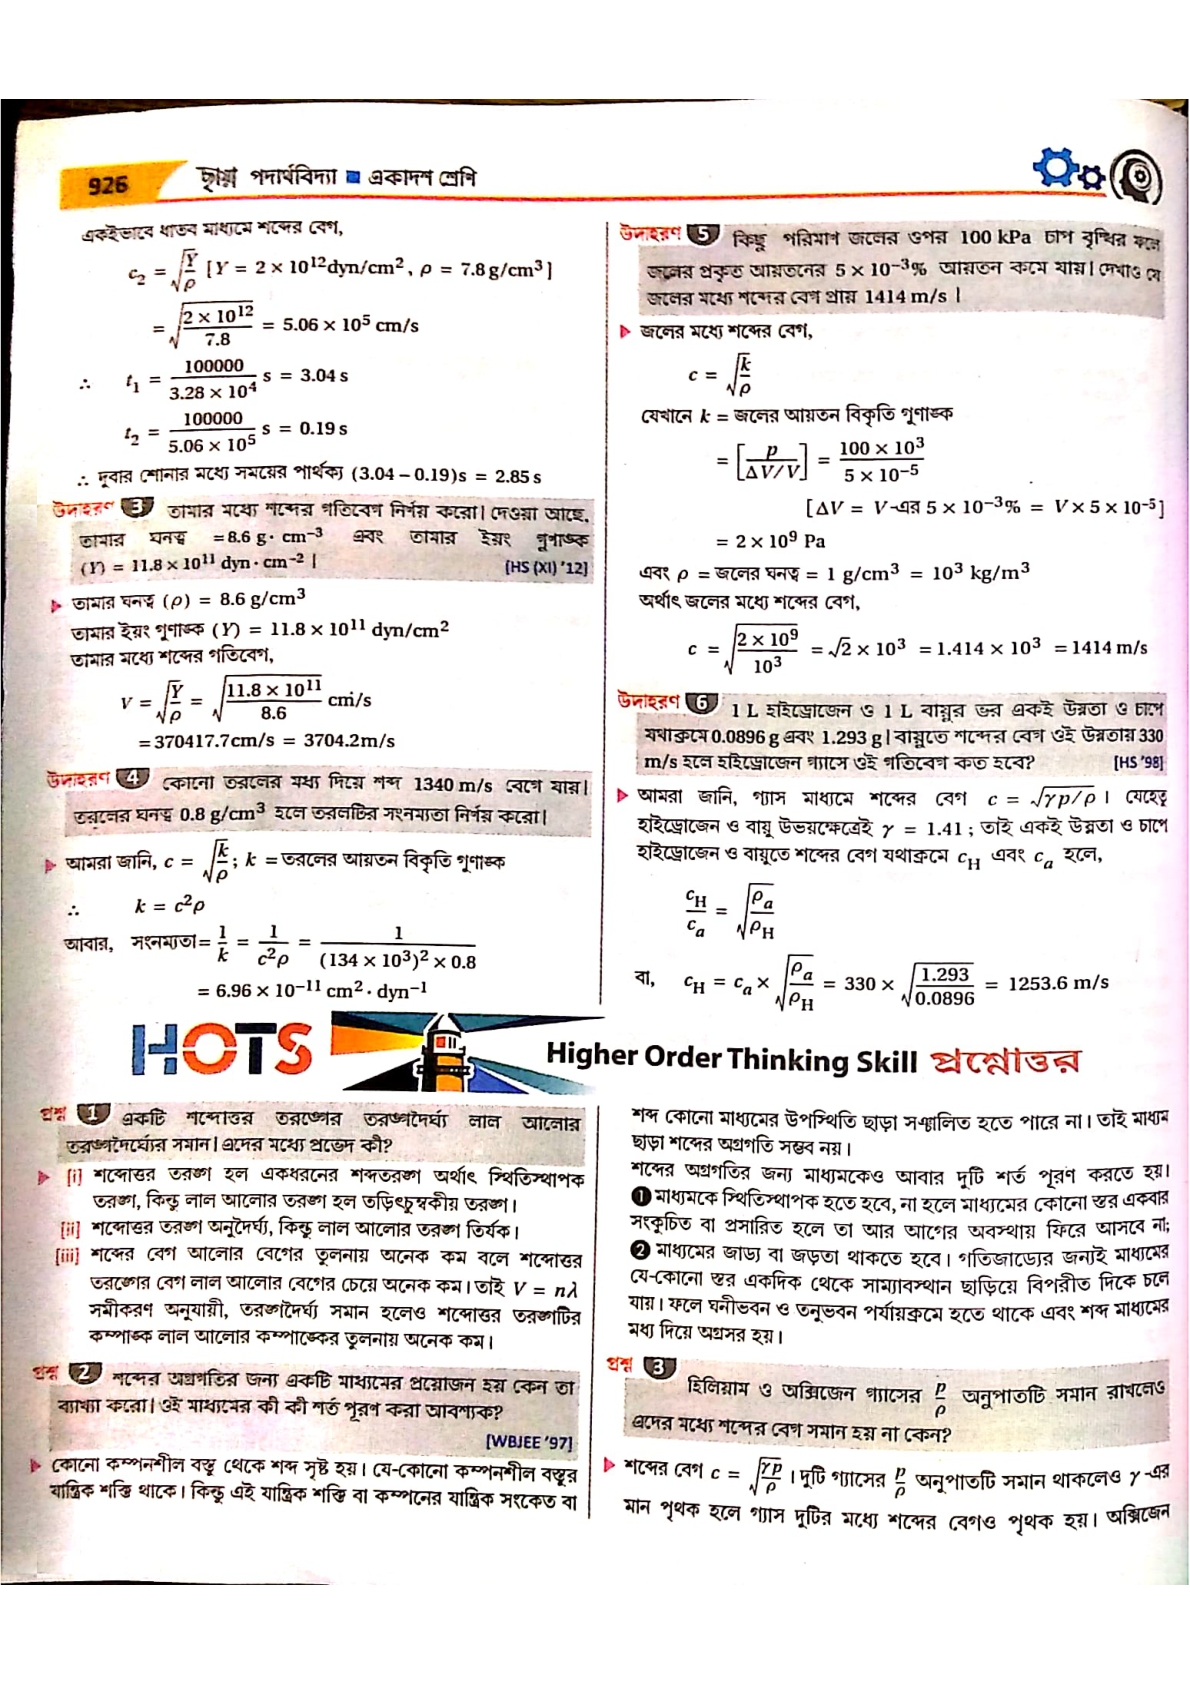 926 ছায়া পদার্থবিদ্যা ■ একাদশ শ্রেণি
একইভাবে ধাতব মাধ্যমে শব্দের বেগ,
c₂ = √(Y/ρ) [Y = 2 × 10¹² dyn/cm², ρ = 7.8 g/cm³]
= √(2 × 10¹²/7.8) = 5.06 × 10⁵ cm/s
∴ t₁ = 100000/(3.28 × 10⁴) s = 3.04 s
t₂ = 100000/(5.06 × 10⁵) s = 0.19 s
∴ দুবার শোনার মধ্যে সময়ের পার্থক্য (3.04 – 0.19)s = 2.85 s
উদাহরণ 3 তামার মধ্যে শব্দের গতিবেগ নির্ণয় করো। দেওয়া আছে,
তামার ঘনত্ব = 8.6 g · cm⁻³ এবং তামার ইয়ং গুণাঙ্ক
(Y) = 11.8 × 10¹¹ dyn · cm⁻² । [HS (XI) '12]
তামার ঘনত্ব (ρ) = 8.6 g/cm³
তামার ইয়ং গুণাঙ্ক (Y) = 11.8 × 10¹¹ dyn/cm²
তামার মধ্যে শব্দের গতিবেগ,
V = √(Y/ρ) = √(11.8 × 10¹¹/8.6) cm/s
= 370417.7cm/s = 3704.2m/s
উদাহরণ 4 কোনো তরলের মধ্য দিয়ে শব্দ 1340 m/s বেগে যায়।
তরলের ঘনত্ব 0.8 g/cm³ হলে তরলটির সংনম্যতা নির্ণয় করো।
আমরা জানি, c = √(k/ρ) ; k = তরলের আয়তন বিকৃতি গুণাঙ্ক
∴ k = c²ρ
আবার, সংনম্যতা = 1/k = 1/(c²ρ) = 1/((134 × 10³)² × 0.8)
= 6.96 × 10⁻¹¹ cm² · dyn⁻¹
উদাহরণ 5 কিছু পরিমাণ জলের ওপর 100 kPa চাপ বৃদ্ধির ফলে
জলের প্রকৃত আয়তনের 5 × 10⁻³% আয়তন কমে যায়। দেখাও যে
জলের মধ্যে শব্দের বেগ প্রায় 1414 m/s ।
জলের মধ্যে শব্দের বেগ,
c = √(k/ρ)
যেখানে k = জলের আয়তন বিকৃতি গুণাঙ্ক
= [p/(ΔV/V)] = (100 × 10³)/(5 × 10⁻⁵)
[ΔV = V-এর 5 × 10⁻³% = V × 5 × 10⁻⁵]
= 2 × 10⁹ Pa
এবং ρ = জলের ঘনত্ব = 1 g/cm³ = 10³ kg/m³
অর্থাৎ জলের মধ্যে শব্দের বেগ,
c = √(2 × 10⁹/10³) = √2 × 10³ = 1.414 × 10³ = 1414 m/s
উদাহরণ 6 1 L হাইড্রোজেন ও 1 L বায়ুর ভর একই উষ্ণতা ও চাপে
যথাক্রমে 0.0896 g এবং 1.293 g। বায়ুতে শব্দের বেগ ওই উষ্ণতায় 330
m/s হলে হাইড্রোজেন গ্যাসে ওই গতিবেগ কত হবে? [HS '98]
আমরা জানি, গ্যাস মাধ্যমে শব্দের বেগ c = √(γp/ρ) । যেহেতু
হাইড্রোজেন ও বায়ু উভয়ক্ষেত্রেই γ = 1.41 ; তাই একই উষ্ণতা ও চাপে
হাইড্রোজেন ও বায়ুতে শব্দের বেগ যথাক্রমে c_H এবং c_a হলে,
c_H/c_a = √(ρ_a/ρ_H)
বা, c_H = c_a × √(ρ_a/ρ_H) = 330 × √(1.293/0.0896) = 1253.6 m/s
HOTS Higher Order Thinking Skill প্রশ্নোত্তর
প্রশ্ন 1 একটি শব্দোত্তর তরঙ্গের তরঙ্গদৈর্ঘ্য লাল আলোর
তরঙ্গদৈর্ঘ্যের সমান। এদের মধ্যে প্রভেদ কী?
[i] শব্দোত্তর তরঙ্গ হল একধরনের শব্দতরঙ্গ অর্থাৎ স্থিতিস্থাপক
তরঙ্গ, কিন্তু লাল আলোর তরঙ্গ হল তড়িৎচুম্বকীয় তরঙ্গ।
[ii] শব্দোত্তর তরঙ্গ অনুদৈর্ঘ্য, কিন্তু লাল আলোর তরঙ্গ তির্যক।
[iii] শব্দের বেগ আলোর বেগের তুলনায় অনেক কম বলে শব্দোত্তর
তরঙ্গের বেগ লাল আলোর বেগের চেয়ে অনেক কম। তাই V = nλ
সমীকরণ অনুযায়ী, তরঙ্গদৈর্ঘ্য সমান হলেও শব্দোত্তর তরঙ্গটির
কম্পাঙ্ক লাল আলোর কম্পাঙ্কের তুলনায় অনেক কম।
প্রশ্ন 2 শব্দের অগ্রগতির জন্য একটি মাধ্যমের প্রয়োজন হয় কেন তা
ব্যাখ্যা করো। ওই মাধ্যমের কী কী শর্ত পূরণ করা আবশ্যক?
[WBJEE '97]
কোনো কম্পনশীল বস্তু থেকে শব্দ সৃষ্ট হয়। যে-কোনো কম্পনশীল বস্তুর
যান্ত্রিক শক্তি থাকে। কিন্তু এই যান্ত্রিক শক্তি বা কম্পনের যান্ত্রিক সংকেত বা
শব্দ কোনো মাধ্যমের উপস্থিতি ছাড়া সঞ্চালিত হতে পারে না। তাই মাধ্যম
ছাড়া শব্দের অগ্রগতি সম্ভব নয়।
শব্দের অগ্রগতির জন্য মাধ্যমকেও আবার দুটি শর্ত পূরণ করতে হয়।
❶ মাধ্যমকে স্থিতিস্থাপক হতে হবে, না হলে মাধ্যমের কোনো স্তর একবার
সংকুচিত বা প্রসারিত হলে তা আর আগের অবস্থায় ফিরে আসবে না;
❷ মাধ্যমের জাড্য বা জড়তা থাকতে হবে। গতিজাড্যের জন্যই মাধ্যমের
যে-কোনো স্তর একদিক থেকে সাম্যাবস্থান ছাড়িয়ে বিপরীত দিকে চলে
যায়। ফলে ঘনীভবন ও তনুভবন পর্যায়ক্রমে হতে থাকে এবং শব্দ মাধ্যমের
মধ্য দিয়ে অগ্রসর হয়।
প্রশ্ন 3 হিলিয়াম ও অক্সিজেন গ্যাসের p/ρ অনুপাতটি সমান রাখলেও
এদের মধ্যে শব্দের বেগ সমান হয় না কেন?
শব্দের বেগ c = √(γp/ρ) । দুটি গ্যাসের p/ρ অনুপাতটি সমান থাকলেও γ-এর
মান পৃথক হলে গ্যাস দুটির মধ্যে শব্দের বেগও পৃথক হয়। অক্সিজেন